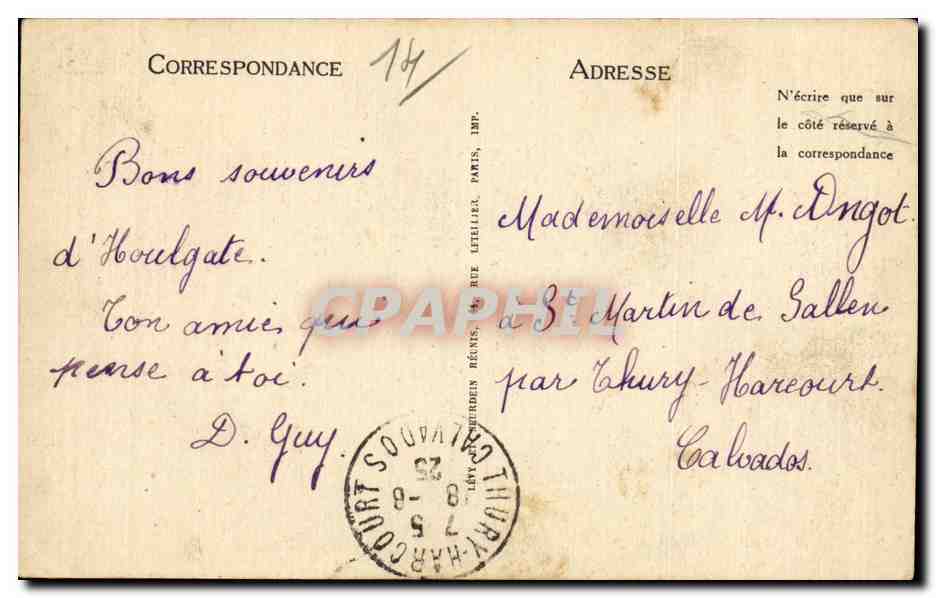 CORRESPONDANCE
14/
Bons souvenirs
d'Houlgate.
Ton amie qui
pense à toi.
D. Guy.
LÉVY ET NEURDEIN RÉUNIS, 44, RUE LETELLIER, PARIS, IMP.
ADRESSE
N'écrire que sur
le côté réservé à
la correspondance
Mademoiselle M. Angot.
à St Martin de Sallen
par Thury-Harcourt.
Calvados.
THURY-HARCOURT CALVADOS
7 5
18 - 8
25
CPAPHIL